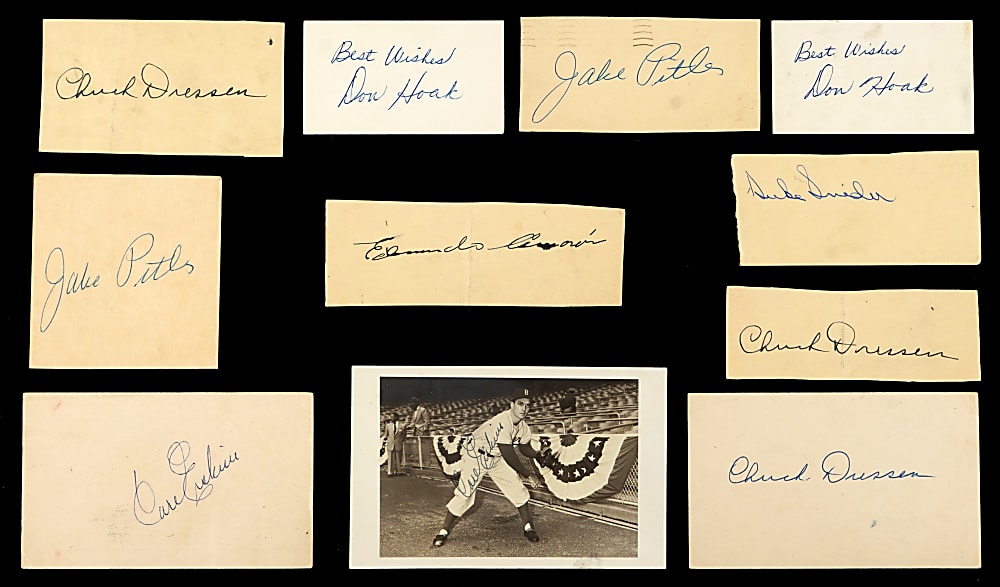 Chuck Dressen
Best Wishes
Don Hoak
Jake Pitler
Best Wishes
Don Hoak
Jake Pitler
Edmundo Amorós
Duke Snider
Chuck Dressen
Carl Erskine
B
Carl Erskine
Chuck Dressen